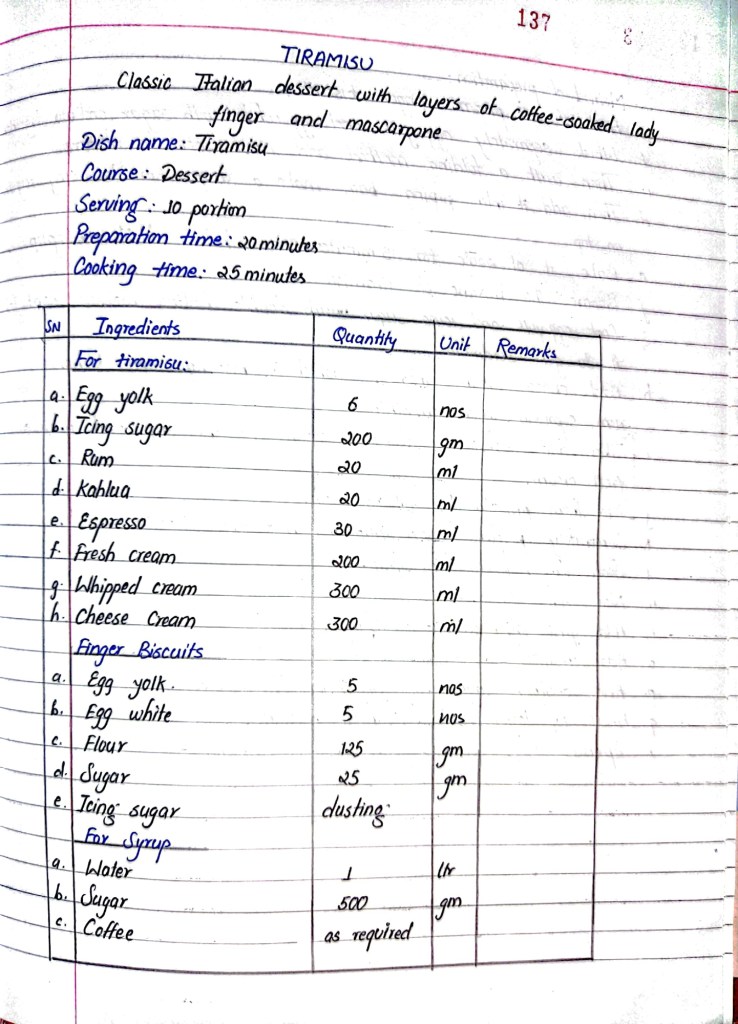 137
TIRAMISU
Classic Italian dessert with layers of coffee-soaked lady
finger and mascarpone
Dish name: Tiramisu
Course: Dessert
Serving: 10 portion
Preparation time: 20 minutes
Cooking time: 25 minutes
SN Ingredients Quantity Unit Remarks
For tiramisu:
a. Egg yolk 6 nos
b. Icing sugar 200 gm
c. Rum 20 ml
d. Kahlua 20 ml
e. Espresso 30 ml
f. Fresh cream 200 ml
g. Whipped cream 300 ml
h. Cheese Cream 300 ml
Finger Biscuits
a. Egg yolk. 5 nos
b. Egg white 5 nos
c. Flour 125 gm
d. Sugar 25 gm
e. Icing sugar dusting
For Syrup
a. Water 1 ltr
b. Sugar 500 gm
c. Coffee as required